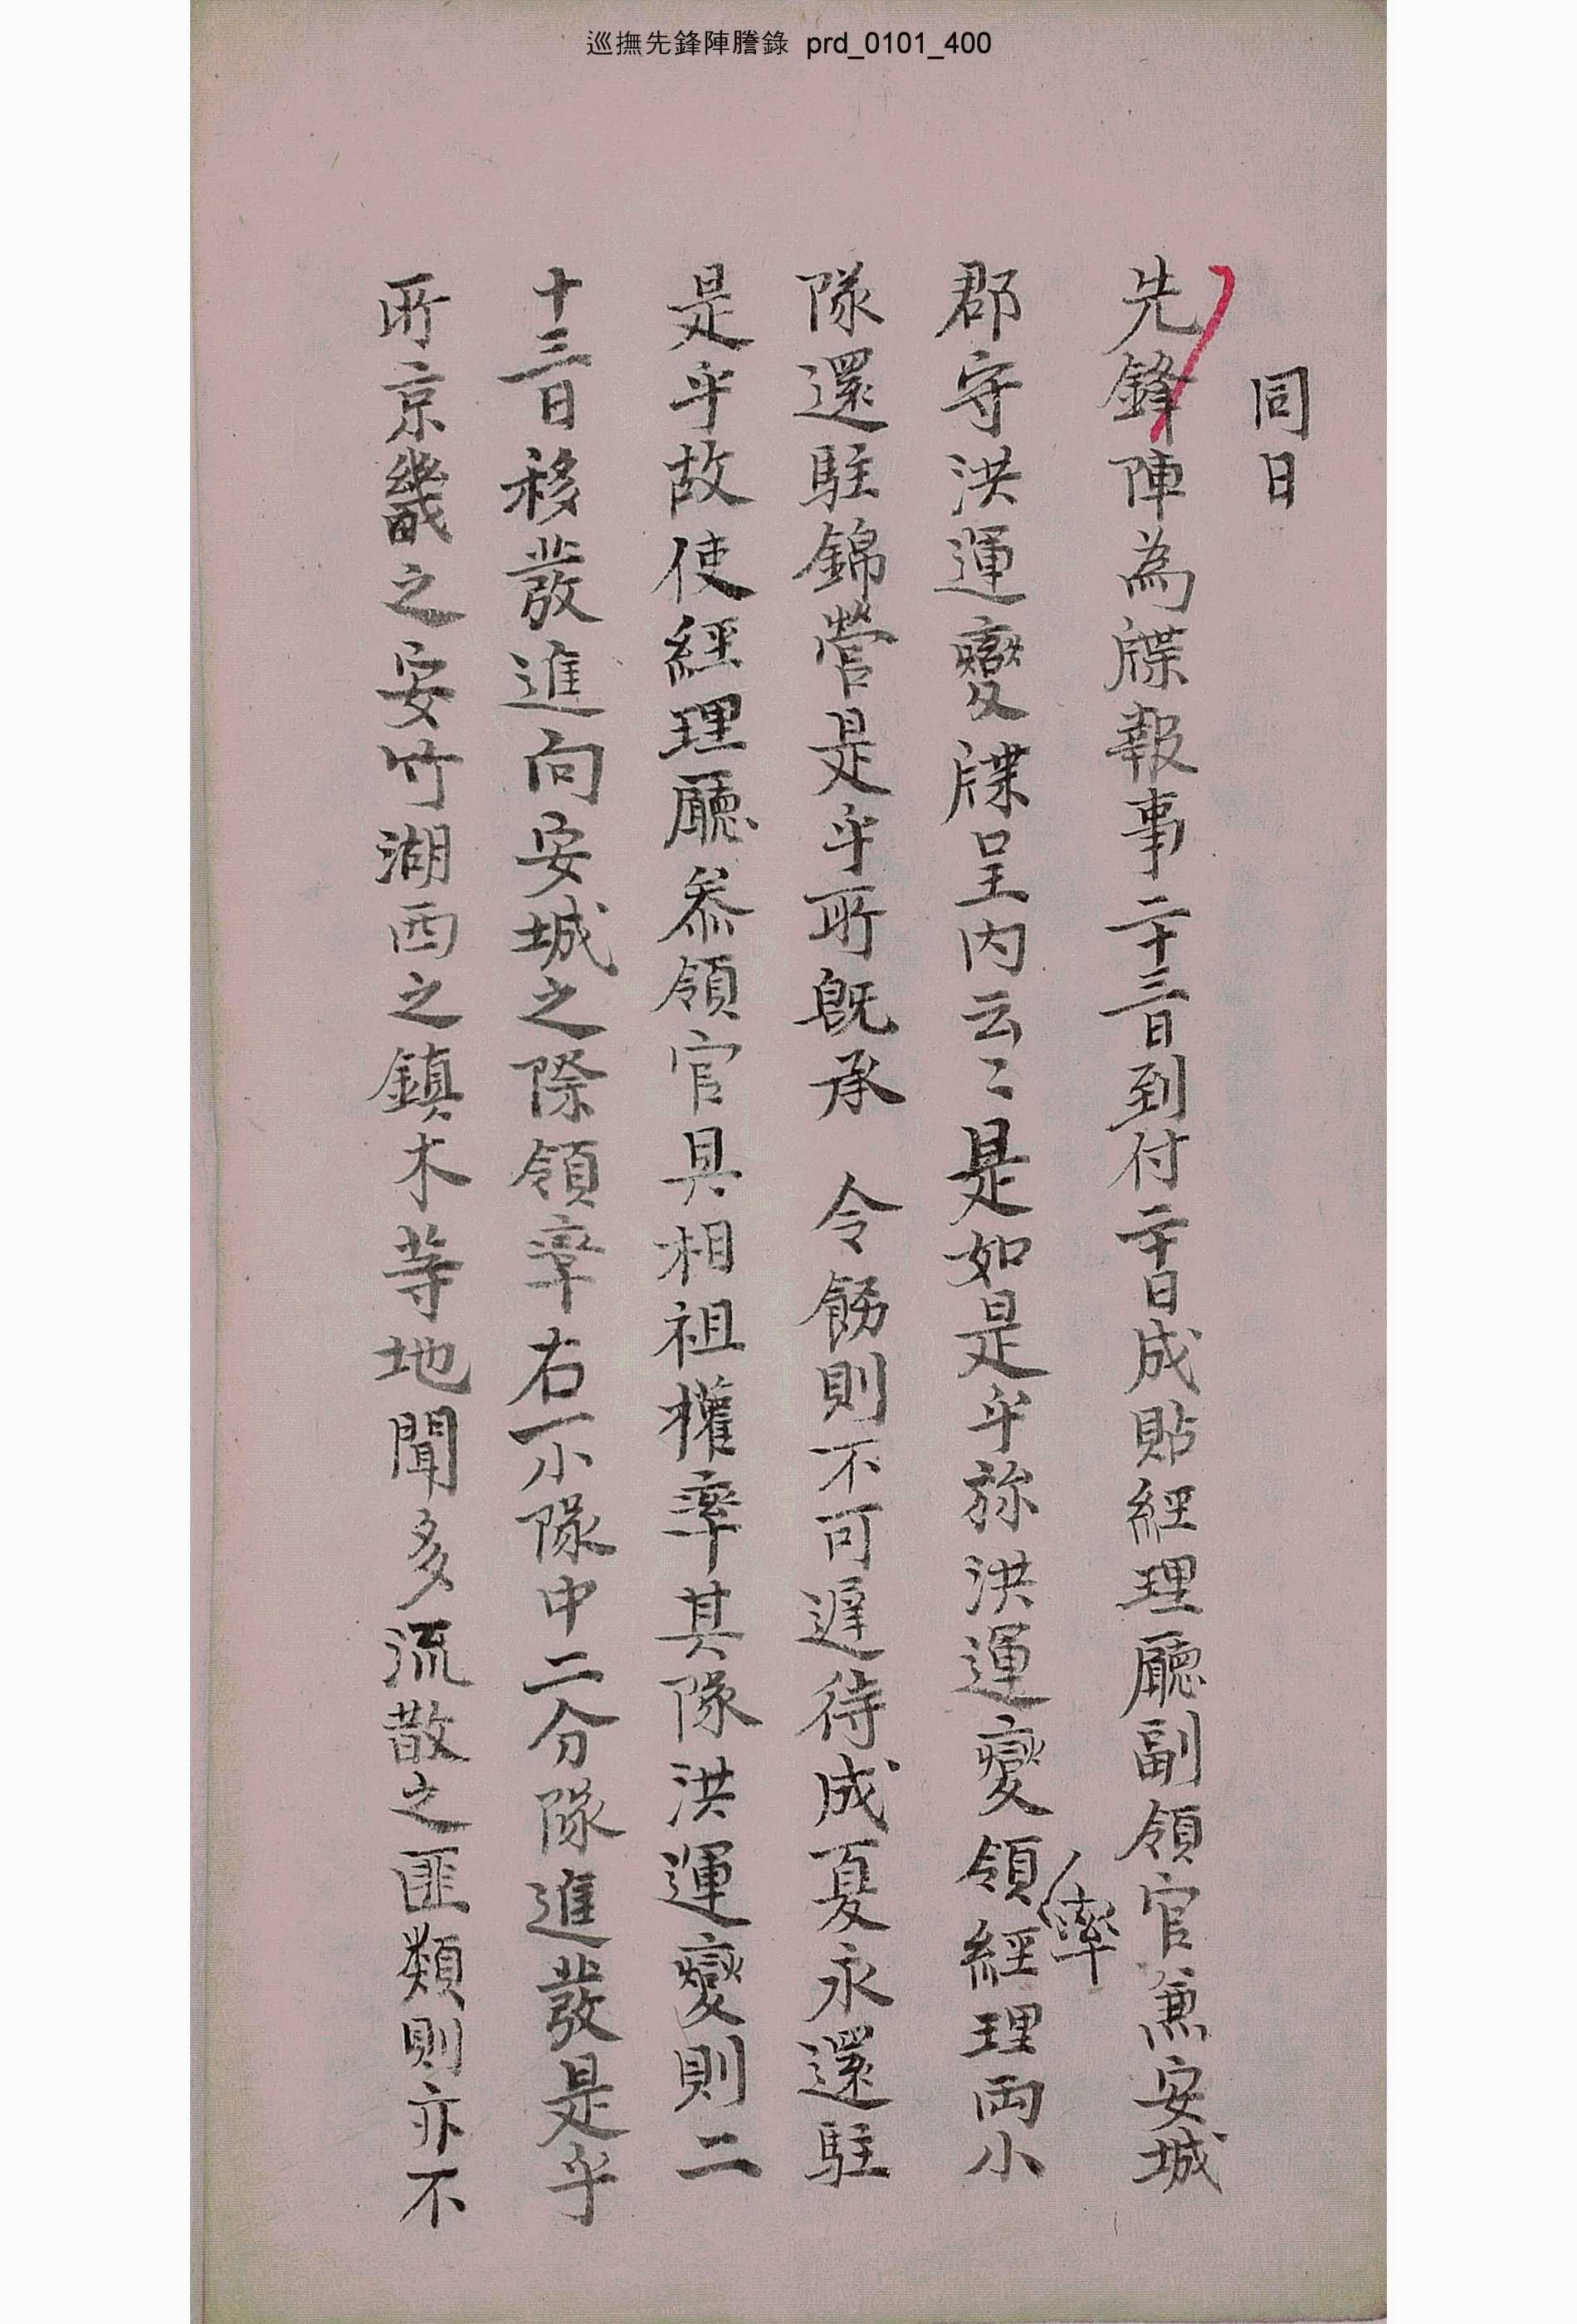 巡撫先鋒陣謄錄 prd_0101_400
同日
先鋒陣為牒報事二十三日到付二十日成貼經理廳副領官兼安城
郡守洪運燮牒呈內云〻是如是乎祢洪運燮領率經理両小
隊還駐錦營是乎所既承 令飭則不可遲待成夏永還駐
是乎故使經理廳叅領官具相祖權率其隊洪運燮則二
十三日移發進向安城之際領率右一小隊中二分隊進發是乎
所京畿之安竹湖西之鎮木等地聞多流散之匪類則亦不